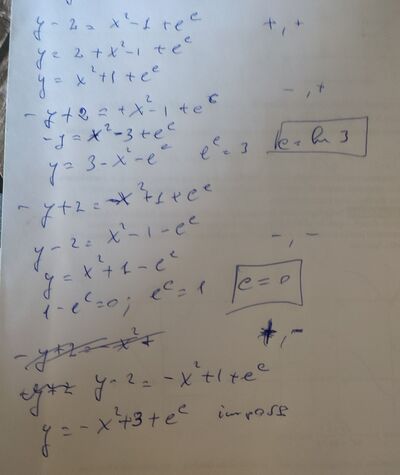 y-2 = x²-1 + eᶜ +, +
y = 2 + x²-1 + eᶜ
y = x²+1 + eᶜ
-y+2 = +x²-1 + eᶜ -, +
-y = x²-3 + eᶜ
y = 3-x²-eᶜ eᶜ = 3 c = ln 3
-y+2 = -x²+1 + eᶜ
y-2 = x²-1-eᶜ -, -
y = x²+1-eᶜ
1-eᶜ=0; eᶜ=1 c = 0
-y+2 = -x²+ +, -
-y+2 y-2 = -x²+1+eᶜ
y = -x²+3+eᶜ imposs